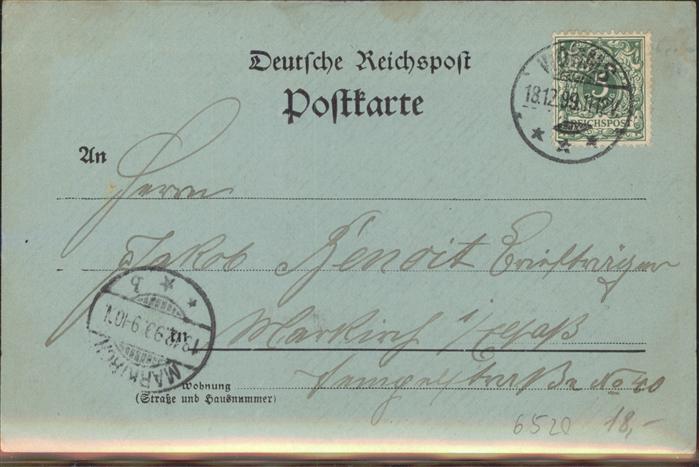 Deutsche Reichspost
Postkarte
WORMS
13.12.99.11-12V.
5
REICHSPOST
An
Herrn
Jakob Benoit Briefträger
Markirch i/Elsaß
Tempelstraße No 40
MARKIRCH
13.12.99.9-10.N.
b
Wohnung
(Straße und Hausnummer)
6520 18,-